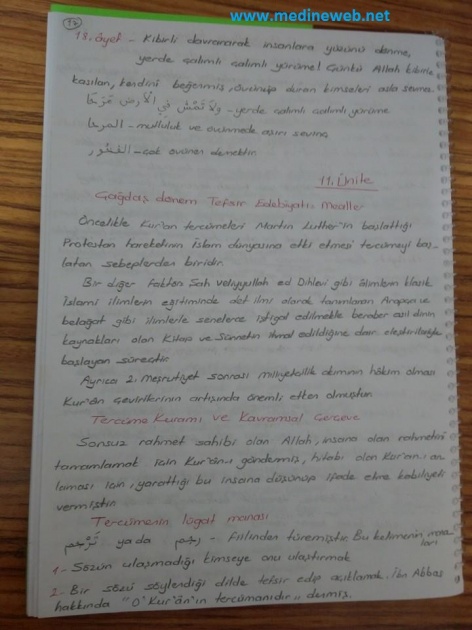 www.medineweb.net
18. âyet - Kibirli davranarak insanlara yüzünü dönme,
yerde çalımlı çalımlı yürüme! Çünkü Allah kibirle
kasılan, kendini beğenmiş, övünüp duran kimseleri asla sevmez.
وَلَا تَمْشِ فِي الْأَرْضِ مَرَحًا - yerde çalımlı çalımlı yürüme
المرحا - mutluluk ve övünmede aşırı sevinç
الفخور - çok övünen demektir.
11. Ünite
Çağdaş dönem Tefsir Edebiyatı: Mealler
Öncelikle Kur'an tercümeleri Martin Luther'in başlattığı
Protestan hareketinin İslam dünyasına etki etmesi tercümeyi baş-
latan sebeplerden biridir.
Bir diğer faktör Şah Veliyyullah ed Dihlevi gibi âlimlerin klasik
İslami ilimlerin eğitiminde alet ilmi olarak tanımlanan Arapça ve
belağat gibi ilimlerle senelerce iştigal edilmekle beraber asıl dinin
kaynakları olan Kitap ve Sünnetin ihmal edildiğine dair eleştirileriyle
başlayan süreçtir.
Ayrıca 2. Meşrutiyet sonrası milliyetçilik akımının hâkim olması
Kur'ân çevirilerinin artışında önemli etken olmuştur.
Tercüme Kuramı ve Kavramsal Çerçeve
Sonsuz rahmet sahibi olan Allah, insana olan rahmetini
tamamlamak için Kur'ân-ı göndermiş, hitabı olan Kur'an-ı an-
laması için, yarattığı bu insana düşünüp ifade etme kabiliyeti
vermiştir.
Tercümenin lügat manası
تَرْجَم ya da رجم - fiilinden türemiştir. Bu kelimenin mana
ları
1- Sözün ulaşmadığı kimseye onu ulaştırmak
2- Bir sözü söylendiği dilde tefsir edip açıklamak. İbn Abbas
hakkında "O Kur'ân'ın tercümanıdır" denmiş.